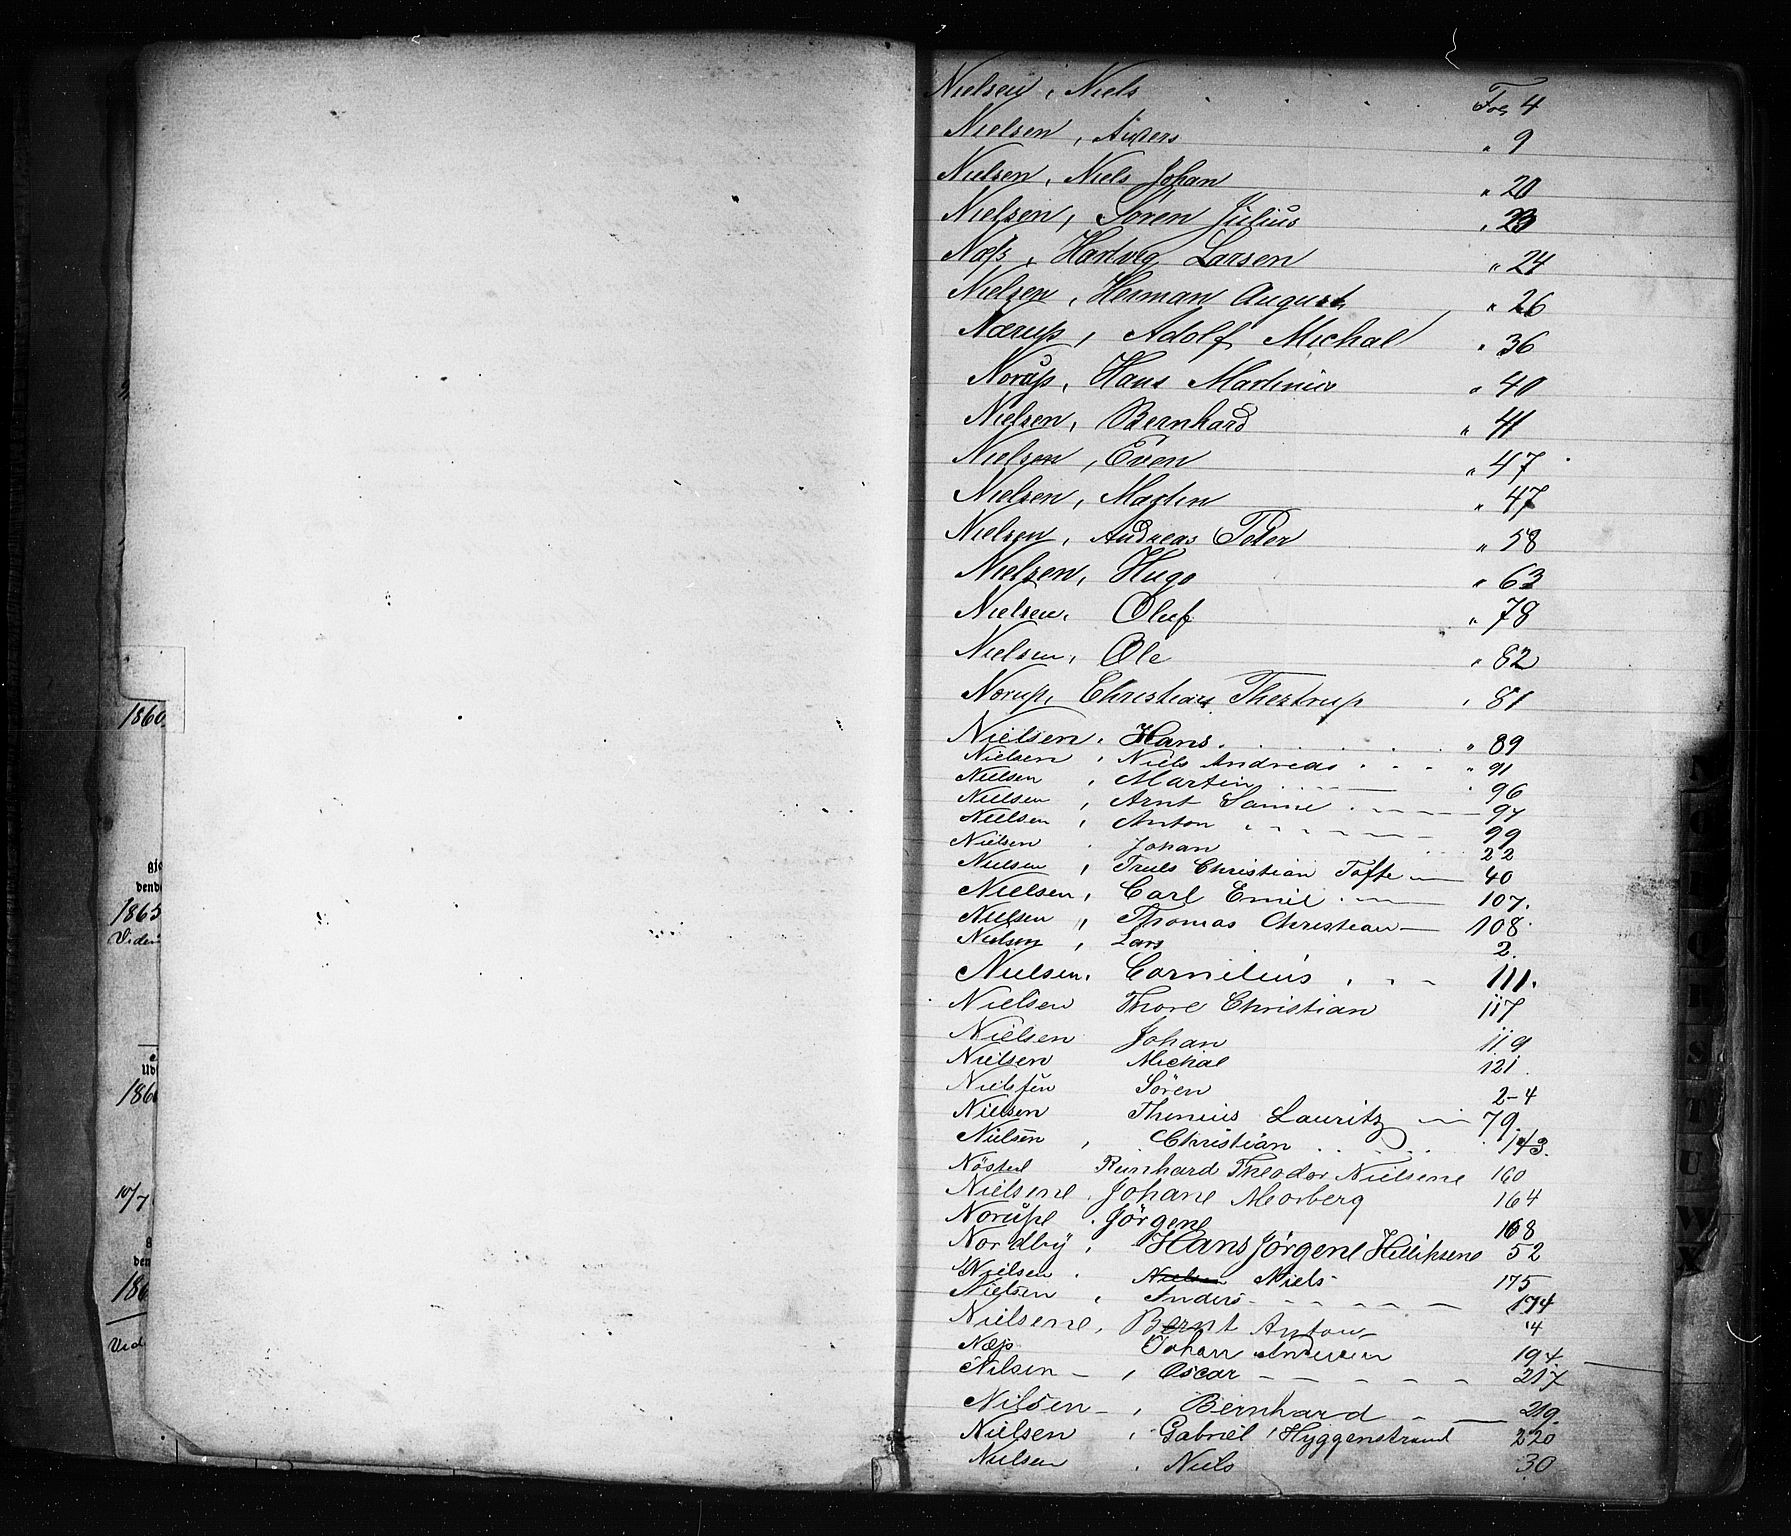 1860.
gj
dend
1865
Viden
Uds
1866
10/7
den
186
Vid
Nielsen, Niels . . . Fol 4
Nielsen, Anders " 9
Nielsen, Niels Johan " 20
Nielsen, Sören Julius " 23
Næss, Hartvig Larsen " 24
Nielsen, Herman August " 26
Nærup, Adolf Michal " 36
Norup, Hans Martinius " 40
Nielsen, Bernhard " 41
Nielsen, Even " 47
Nielsen, Martin " 47
Nielsen, Andreas Peter " 58
Nielsen, Hugo " 63
Nielsen, Oluf " 78
Nielsen, Ole " 82
Norup, Christian Thestrup " 81
Nielsen, Hans . . . " 89
Nielsen, Niels Andreas . . . " 91
Nielsen, Martin . . . 96
Nielsen, Arnt Samuel . . . 97
Nielsen, Anton . . . 99
Nielsen, Johan 22
Nielsen, Truls Christian Tofte — 40
Nielsen, Carl Emil . — 107.
Nielsen, Thomas Christian — 108.
Nielsen, Lars 2.
Nielsen, Cornelius . . . 111.
Nielsen Thore Christian 117
Nielsen Johan 119
Nielsen Michal 121.
Nielsen Sören 2-4
Nielsen Lauritz — 79.
Nielsen, Christian . . . 143.
Nösted Reinhard Theodor Nielsen 160
Nielsen, Johan Morberg 164
Norup, Jörgen 168
Nordby, Hans Jörgen Hilliksen 52
Nielsen, Niels 175
Nielsen, Anders - - - 174
Nielsen, Bernt Anton 4
Næss Johan Andersen 194
Nilsen -, Oscar - - - 217
Nilsen -, Bernhard - — 219.
Nielsen, Gabriel Hyggenstrand 220
Nielsen, Niels 30
N
O
P
Q
R
S
T
U
W
X